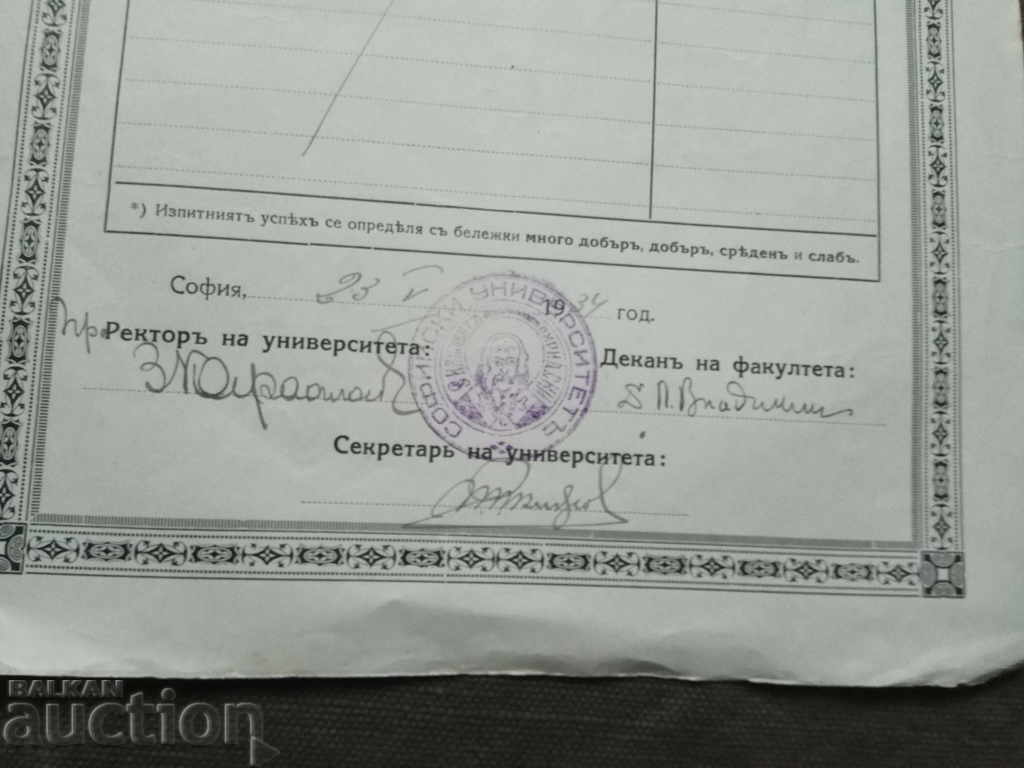 *) Изпитниятъ успѣхъ се опредѣля съ бележки много добъръ, добъръ, срѣденъ и слабъ.
София, 23 V 1934 год.
Ректоръ на университета:
Деканъ на факултета:
СОФИЙСКИ УНИВЕРСИТЕТЪ
Секретарь на университета:
BALKAN
auction